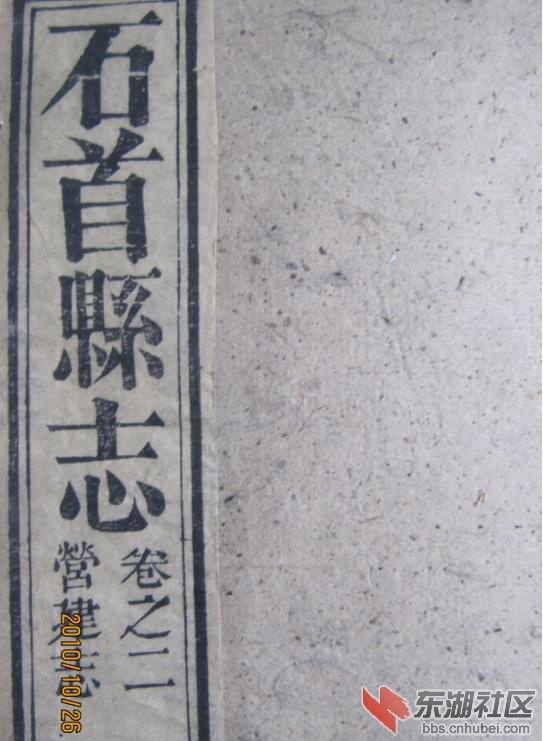 石首縣志
卷之二
營建志
2010/10/26
东湖社区
bbs.cnhubei.com